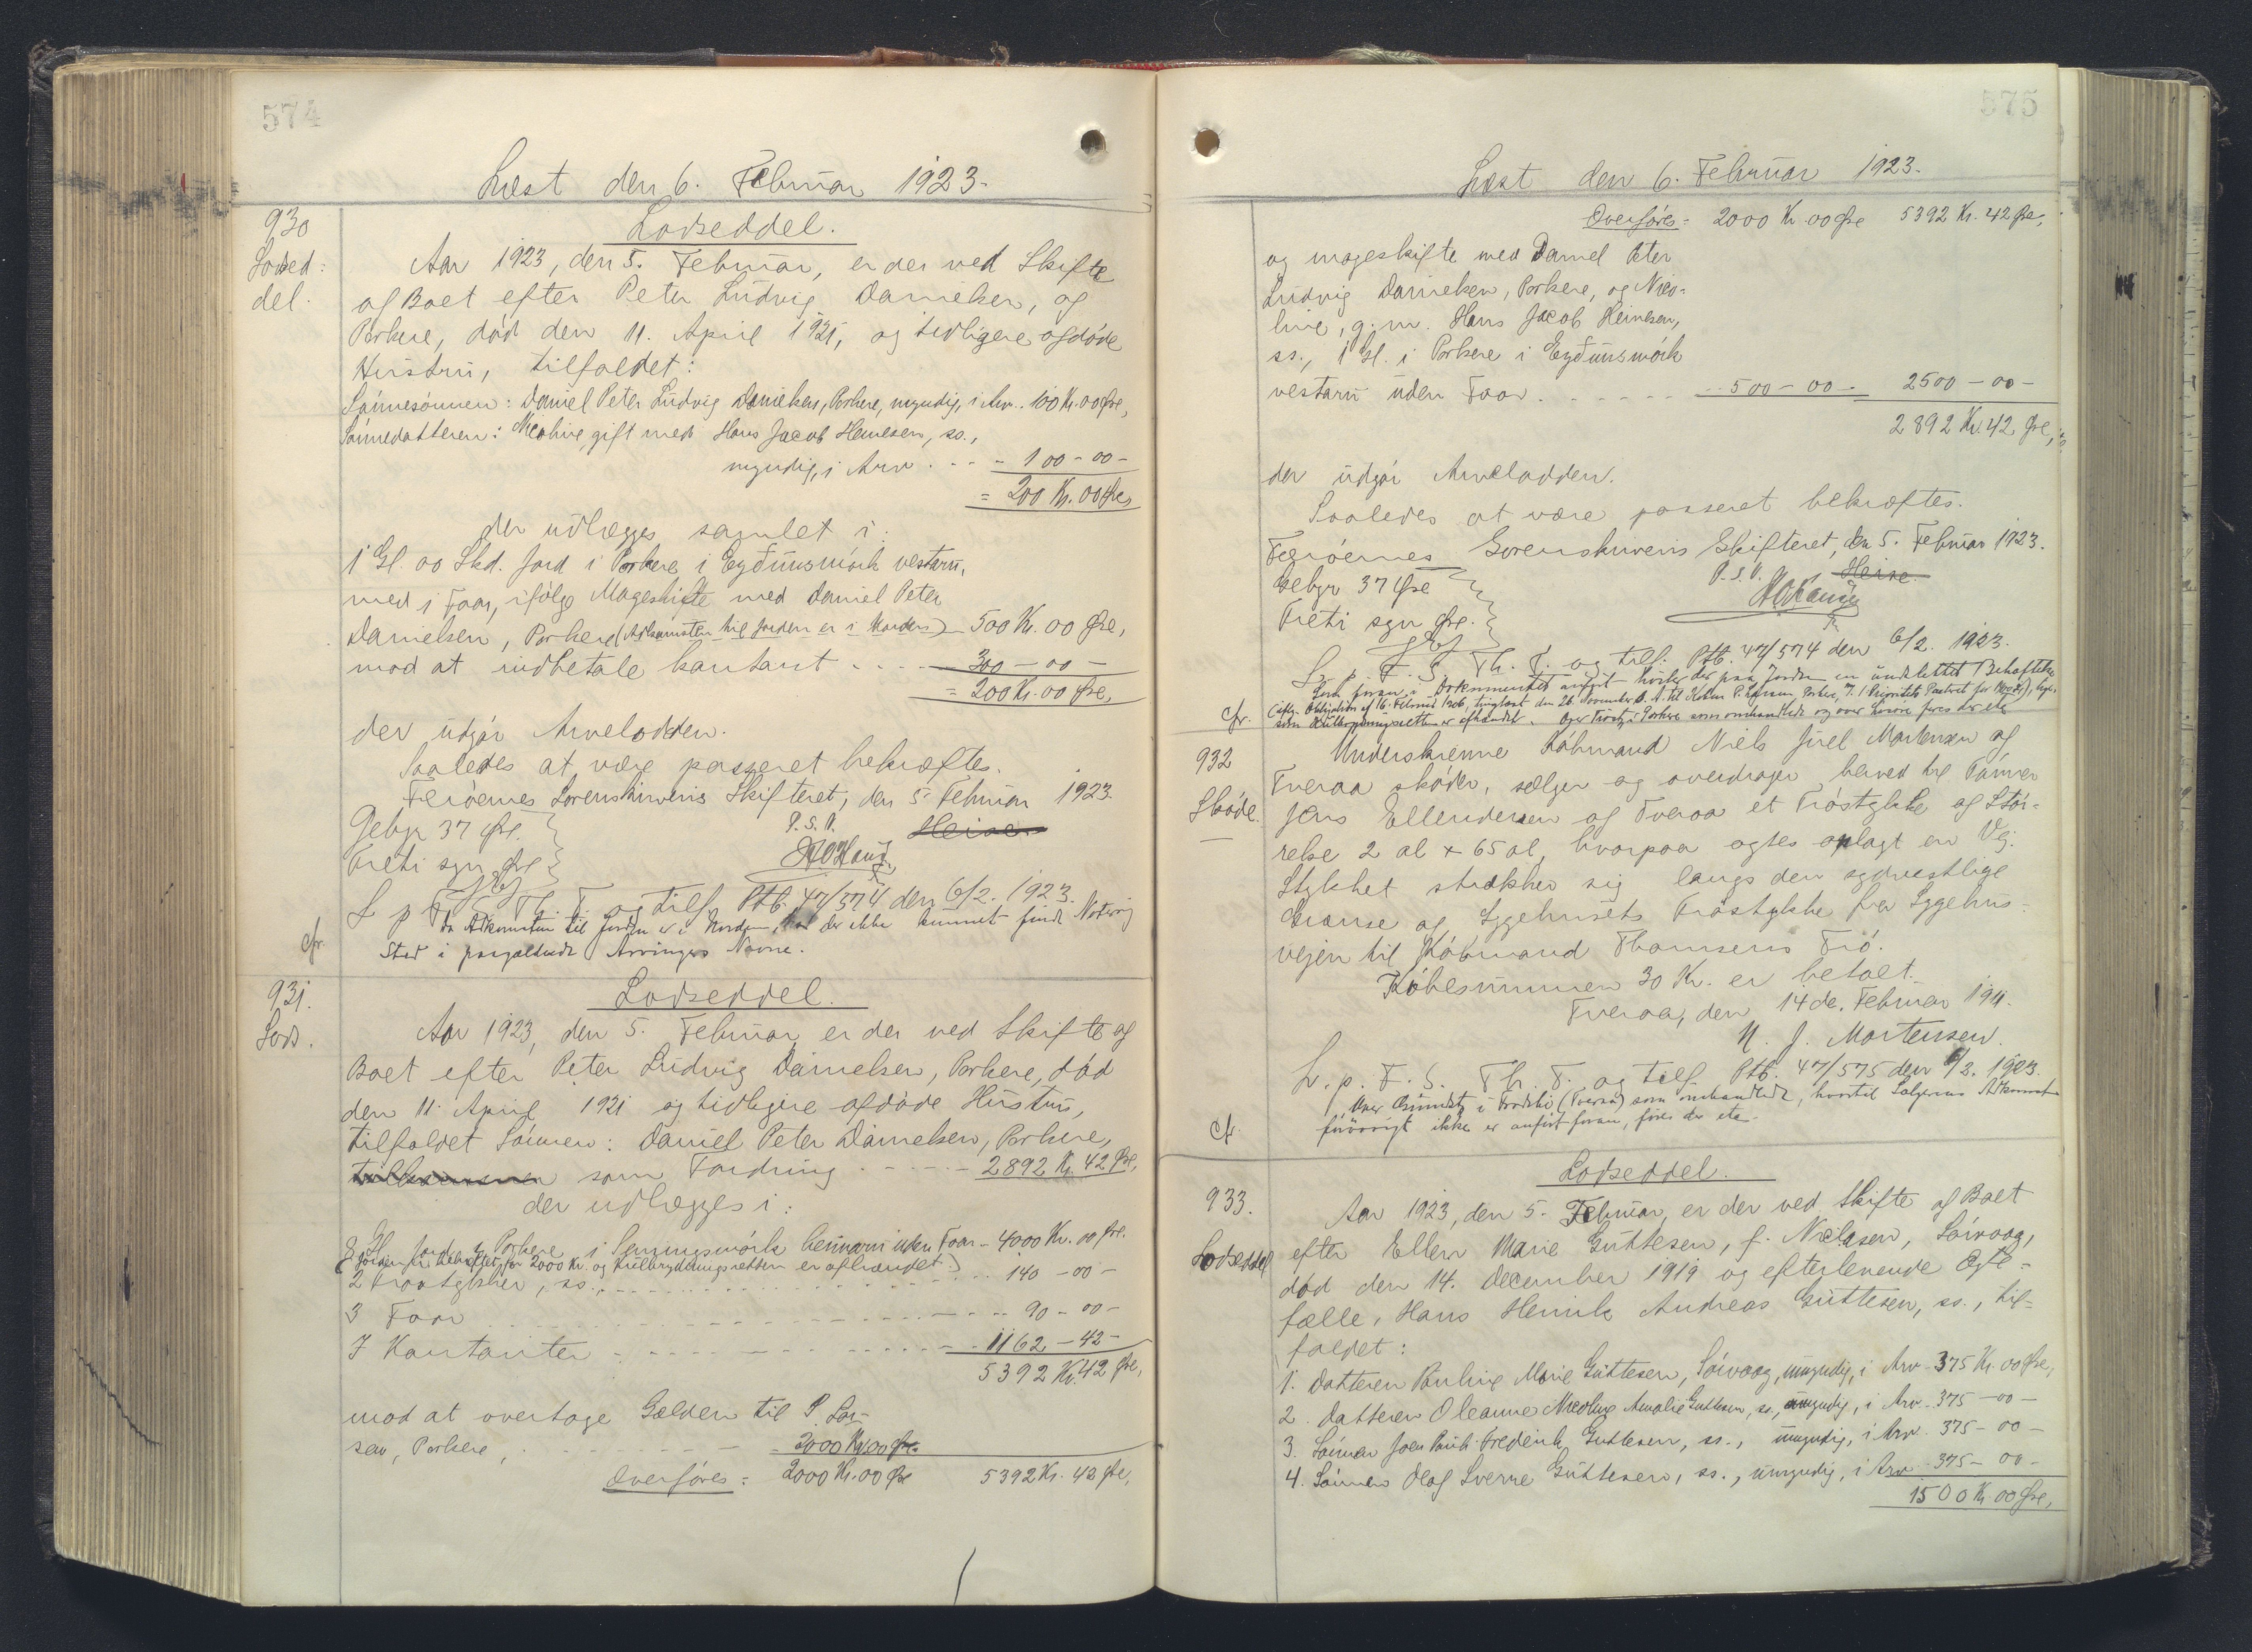 574
Læst den 6. Februar 1923.
930
Lodsed:
del.
Lodseddel.
Aar 1923, den 5. Februar, er der ved Skifte
af Boet efter Peter Ludvig Danielsen, af
Porkere, død den 11. April 1921, og tidligere afdøde
Hustru, tilfaldet:
Sønnesønnen: Daniel Peter Ludvig Danielsen, Porkere, myndig, i Arv.. 100 Kr. 00 Øre,
Sønnedatteren: Nicoline, gift med Hans Jacob Heinesen, ss.,
myndig, i Arv . - - - 100 - 00 -
= 200 Kr. 00 Øre,
der udlægges samlet i:
1 Gl. 00 Skd. Jord i Porkere i Eyðunsmørk vestaru,
med 1 Faar, ifølge Mageskifte med Daniel Peter
Danielsen, Porkere (Adkomsten til Jorden er i Uorden) - 500 Kr. 00 Øre,
mod at indbetale kontant . . - - 300 - 00 -
= 200 Kr. 00 Øre,
der udgør Arvelodden.
Saaledes at være passeret bekræftes.
Færøernes Sorenskriveris Skifteret, den 5. Februar 1923.
Gebyr 37 Øre.
P. S. V.
Heise
Treti syv Øre
L. p. F. S. Th. F. og tilf. Ptb. 47/574 den 6/2. 1923.
cfr.
Da Adkomsten til Jorden er i Uorden, har der ikke kunnet finde Notering
Sted i paagældende Arvinges Navne.
931.
Lods.
Lodseddel.
Aar 1923, den 5. Februar, er der ved Skifte af
Boet efter Peter Ludvig Danielsen, Porkere, død
den 11. April 1921 og tidligere afdøde Hustru,
tilfaldet Sønnen: Daniel Peter Danielsen, Porkere,
som Fordring - - - - - 2892 Kr. 42 Øre,
der udlægges i:
8 Gl. Jord i Porkere i heimaru uden Faar - 4000 Kr. 00 Øre.
(Jorden er behæftet for 2000 Kr. og Kulbrydningsretten er afhændet)
2 Trøstykker, ss., - - - 140 - 00 -
3 Faar - - - 90 - 00 -
I Kontanter - - - 1162 - 42 -
5392 Kr. 42 Øre,
mod at overtage Gælden til P. Lar-
sen, Porkere, - - - 2000 Kr. 00 Øre
Overføres: 2000 Kr. 00 Øre 5392 Kr. 42 Øre,
575
Læst den 6. Februar 1923.
Overføres = 2000 Kr. 00 Øre 5392 Kr. 42 Øre,
og mageskifte med Daniel Peter
Ludvig Danielsen, Porkere, og Nico-
line, g. m. Hans Jacob Heinesen,
ss., 1 Gl. i Porkere i Eyðunsmørk
vestaru uden Faar . - - - - - 500 - 00 - 2500 - 00 -
2892 Kr. 42 Øre,
der udgør Arvelodden.
Saaledes at være passeret bekræftes.
Færøernes Sorenskriveris Skifteret, den 5. Februar 1923.
Gebyr 37 Øre
P. S. V.
Heise
Treti syv Øre.
L. p. F. S. Th. F. og tilf. Ptb. 47/574 den 6/2. 1923.
cfr.
Som foran i Dokumentet anført hviler der paa Jorden en Behæftelse
som Kulbrydningsretten er afhændet. Trøstz i Porkere som omhandlede
932
Skøde.
Underskrevne Købmand Niels Juel Mortensen af
Tveraa skøder, sælger og overdrager herved til Tømrer
Jens Ellendersen af Tveraa et Trøstykke af Stør-
relse 2 al x 65 al, hvorpaa agtes anlagt en Vej.
Stykket strækker sig langs den sydvestlige
Grænse af Sygehusets Trøstykke fra Sygehus-
vejen til Købmand Thomsens Trø.
Købesummen 30 Kr. er betalt.
Tveraa, den 14de. Februar 1911.
N. J. Mortensen.
L. p. F. S. Th. F. og tilf. Ptb. 47/575 den 6/2. 1923.
cfr.
i Frodebø (Tveraa) som omhandlede, hvortil Sælgerens Adkomst
forøvrigt ikke er anført foran, føres der
933.
Lodseddel
Lodseddel.
Aar 1923, den 5. Februar, er der ved Skifte af Boet
efter Ellen Marie Guttesen, f. Nielsen, Sørvaag,
død den 14. December 1919 og efterlevende Ægte-
fælle, Hans Henrik Andreas Guttesen, ss., til-
faldet:
1. Datteren Pauline Marie Guttesen, Sørvaag, umyndig, i Arv - 375 Kr. 00 Øre,
2. Datteren Oleanne Nicoline Amalie Guttesen, ss., umyndig, i Arv. 375 - 00 -
3. Sønnen Joen Pauli Frederik Guttesen, ss., umyndig, i Arv. 375 - 00 -
4. Sønnen Olaf Sverre Guttesen, ss., umyndig, i Arv 375 - 00 -
1500 Kr. 00 Øre,